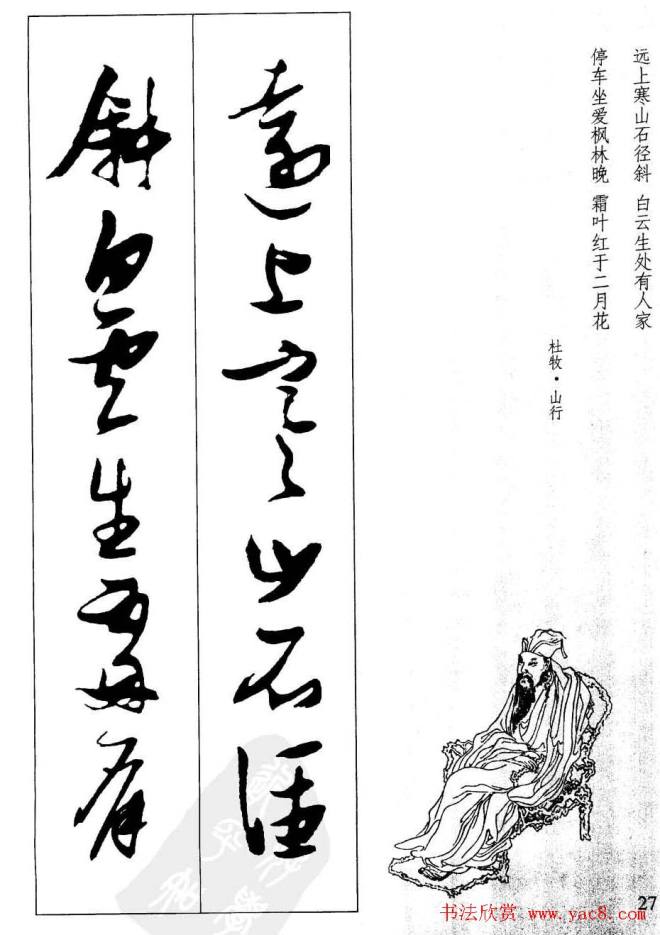 远上寒山石径斜 白云生处有人家
停车坐爱枫林晚 霜叶红于二月花
杜牧·山行
遠上寒山石徑
斜白雲生處有
27
书法欣赏 www.yac8.com